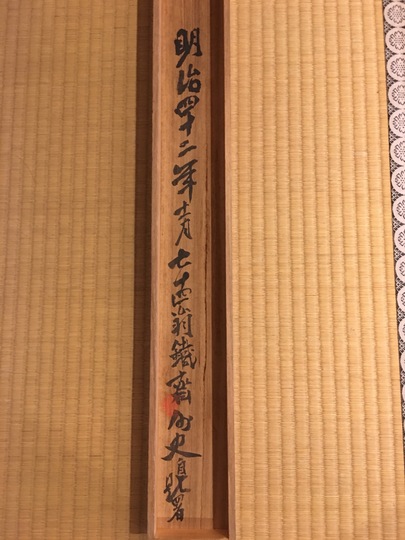 明治四十二年十一月七十四翁鐵齋外史自題署